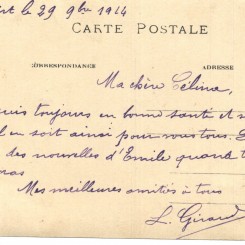 le 29 9bre 1914
CARTE POSTALE
CORRESPONDANCE
ADRESSE
Ma chère Célina,
suis toujours en bonne santé et
en soit ainsi pour vous tous.
des nouvelles d'Emile quand
Mes meilleures amitiés à tous
L. Girard